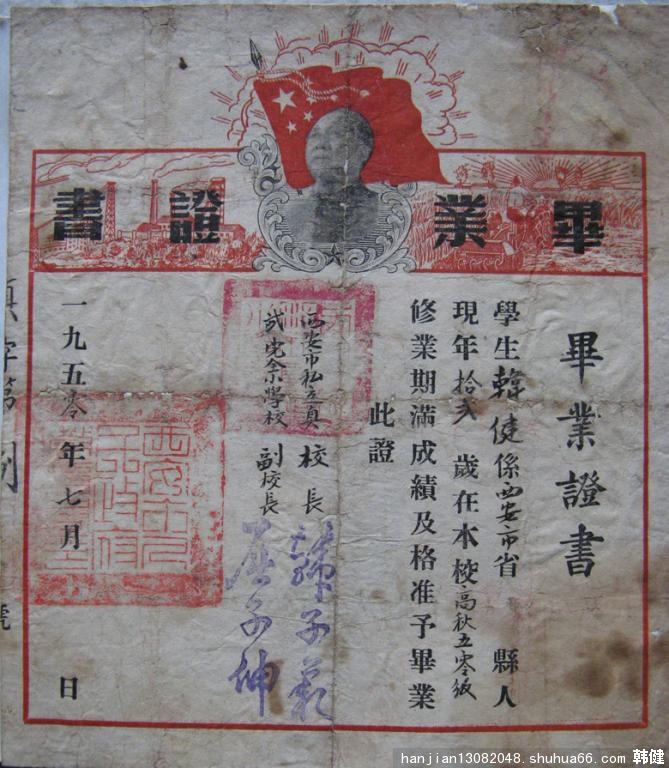 畢業證書
畢業證書
學生韓健係西安市省 縣人
現年拾弍歲在本校高秋五零級
修業期滿成績及格准予畢業
此證
西安市私立真
學校
校長
副校長
一九五零年七月 日
字第 號
hanjian13082048.shuhua66.com 韩健